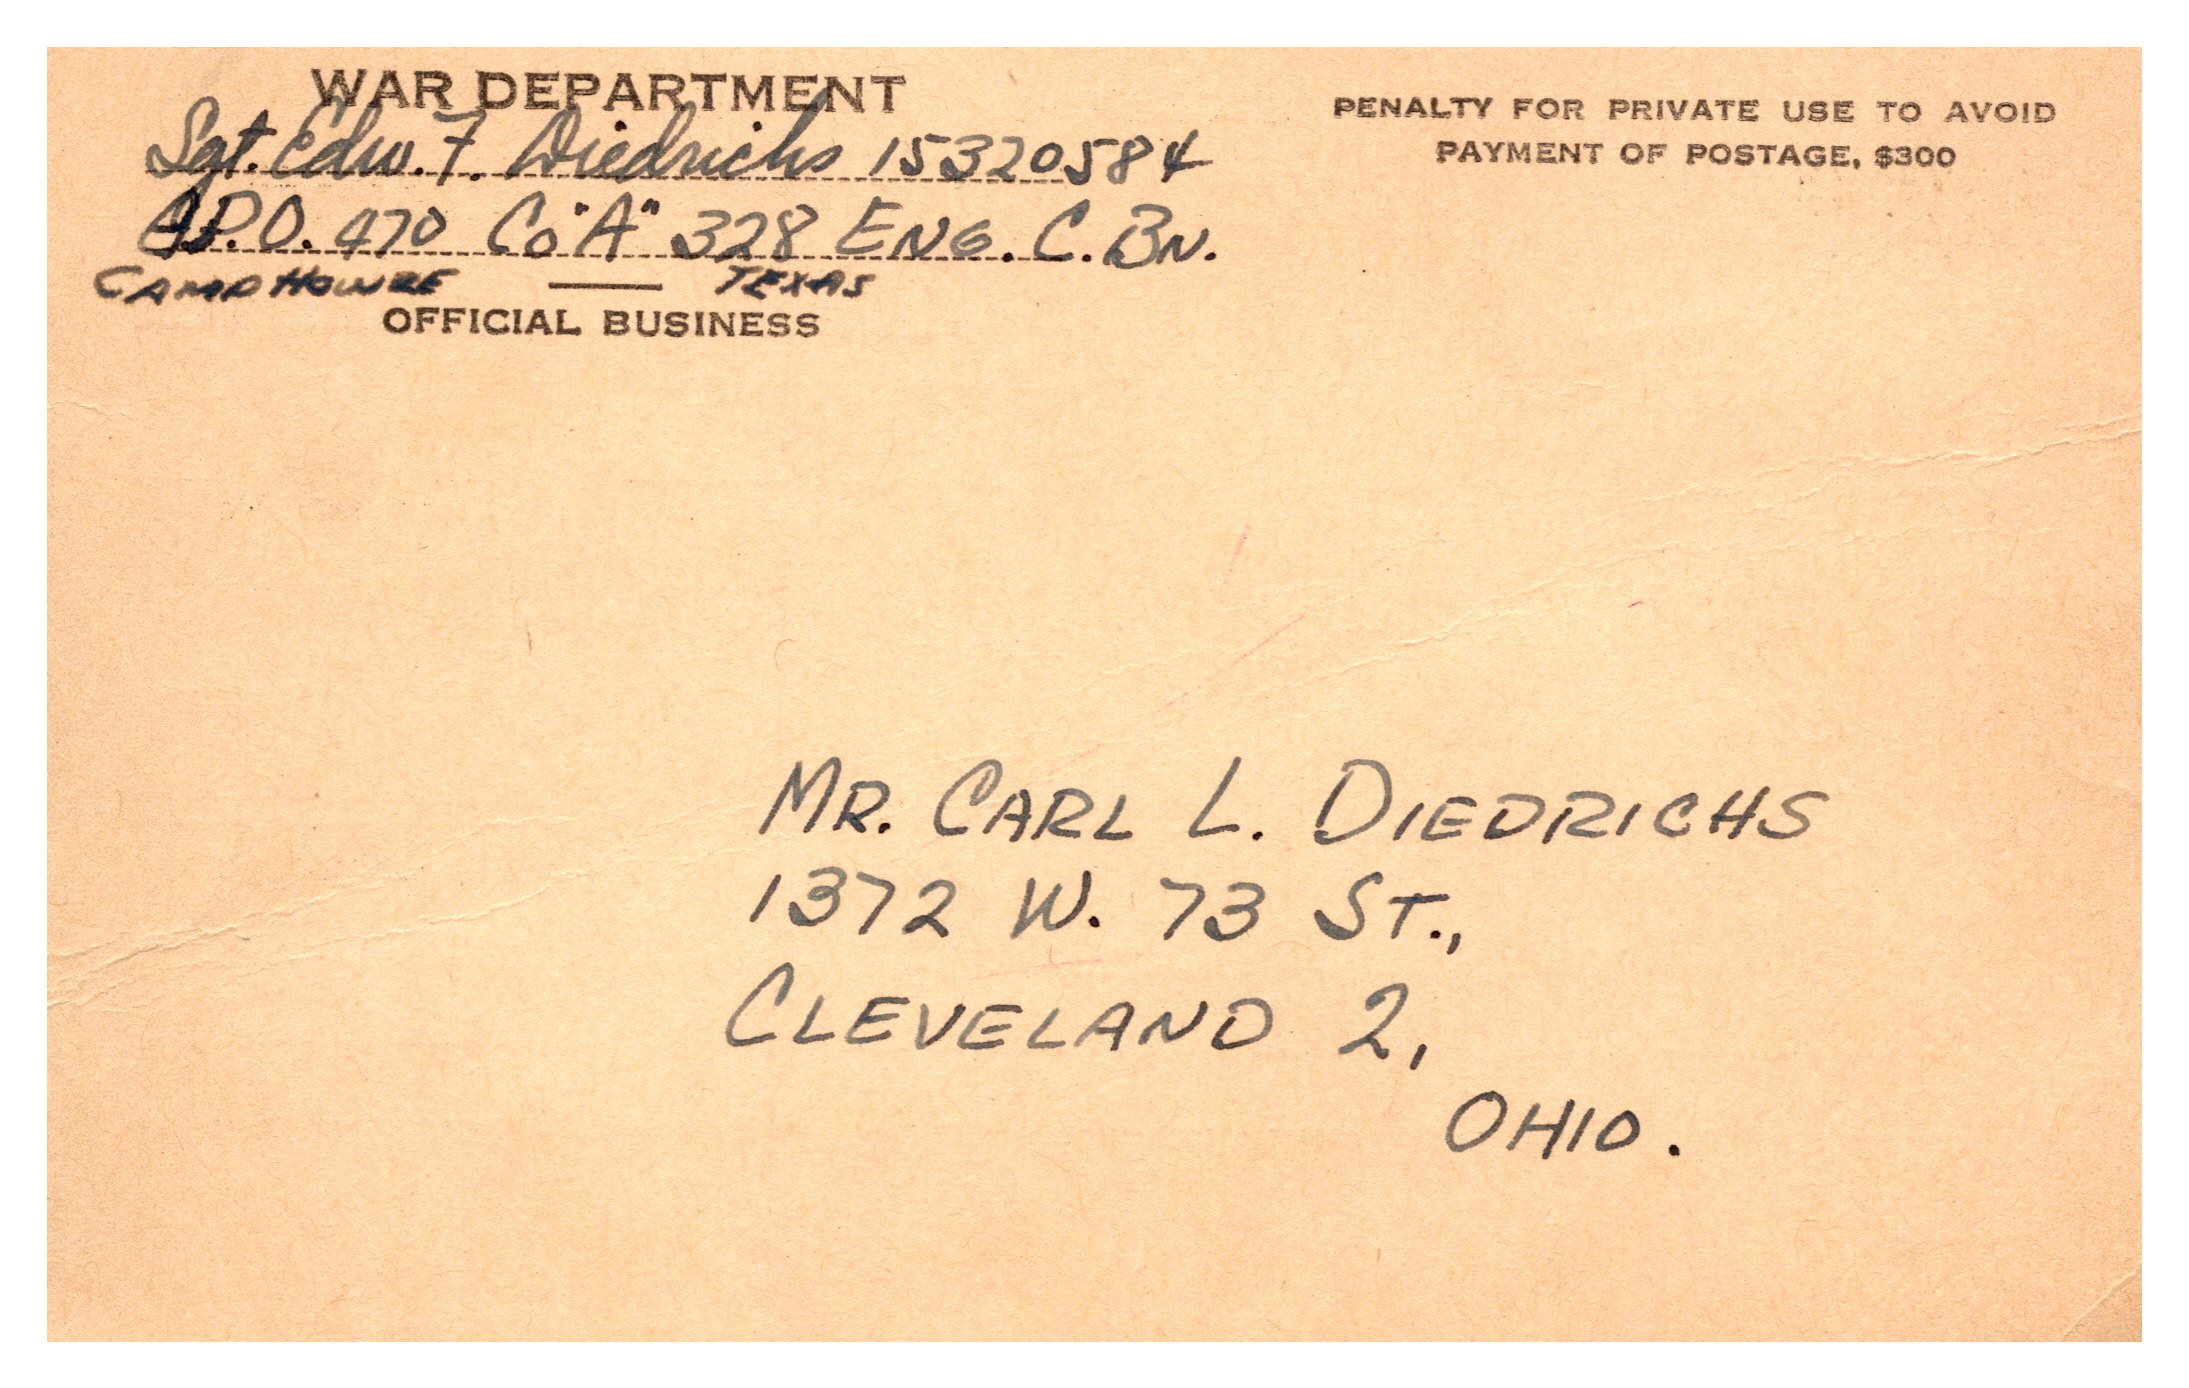 WAR DEPARTMENT
PENALTY FOR PRIVATE USE TO AVOID
PAYMENT OF POSTAGE, $300
Sgt. Edw. F. Diedrichs 15320584
A.P.O. 470 Co "A" 328 ENG. C. BN.
CAMP HOWZE TEXAS
OFFICIAL BUSINESS
MR. CARL L. DIEDRICHS
1372 W. 73 ST.,
CLEVELAND 2,
OHIO.